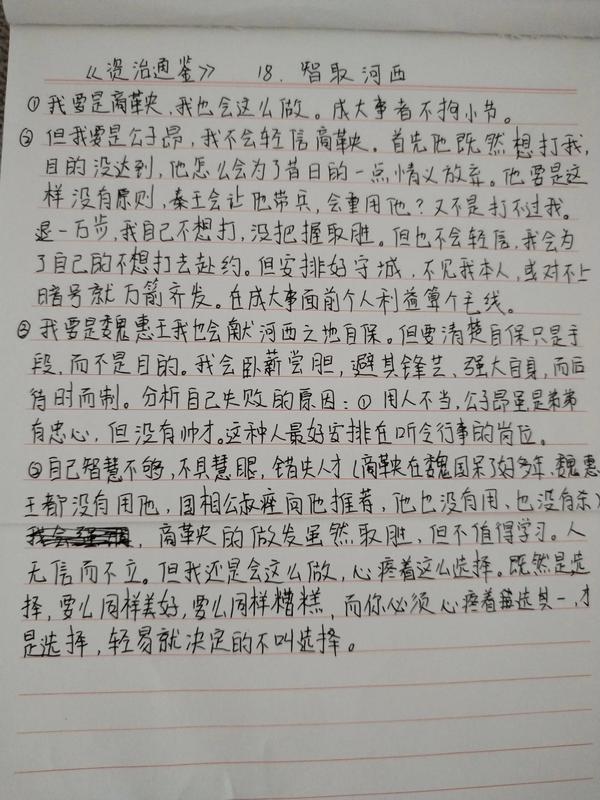 《资治通鉴》 18. 智取河西
①我要是商鞅,我也会这么做。成大事者不拘小节。
②但我要是公子昂,我不会轻信商鞅。首先他既然想打我,
目的没达到,他怎么会为了昔日的一点情义放弃。他要是这
样没有原则,秦王会让他带兵,会重用他?又不是打不过我。
退一万步,我自己不想打,没把握取胜。但也不会轻信,我会为
了自己的不想打去赴约。但安排好守城,不见我本人,或对不上
暗号就万箭齐发。在成大事面前个人利益算个毛线。
③我要是魏惠王我也会献河西之地自保。但要清楚自保只是手
段,而不是目的。我会卧薪尝胆,避其锋芒、强大自身,而后
待时而制。分析自己失败的原因:①用人不当,公子昂虽是弟弟
有忠心,但没有帅才。这种人最好安排在听令行事的岗位。
②自己智慧不够,不具慧眼,错失人才(商鞅在魏国呆了好多年、魏惠
王都没有用他,国相公叔痤向他推荐,他也没有用、也没有杀)
,商鞅的做发虽然取胜,但不值得学习。人
无信而不立。但我还是会这么做,心疼着这么选择。既然是选
择,要么同样美好,要么同样糟糕,而你必须心疼着选其一,才
是选择,轻易就决定的不叫选择。